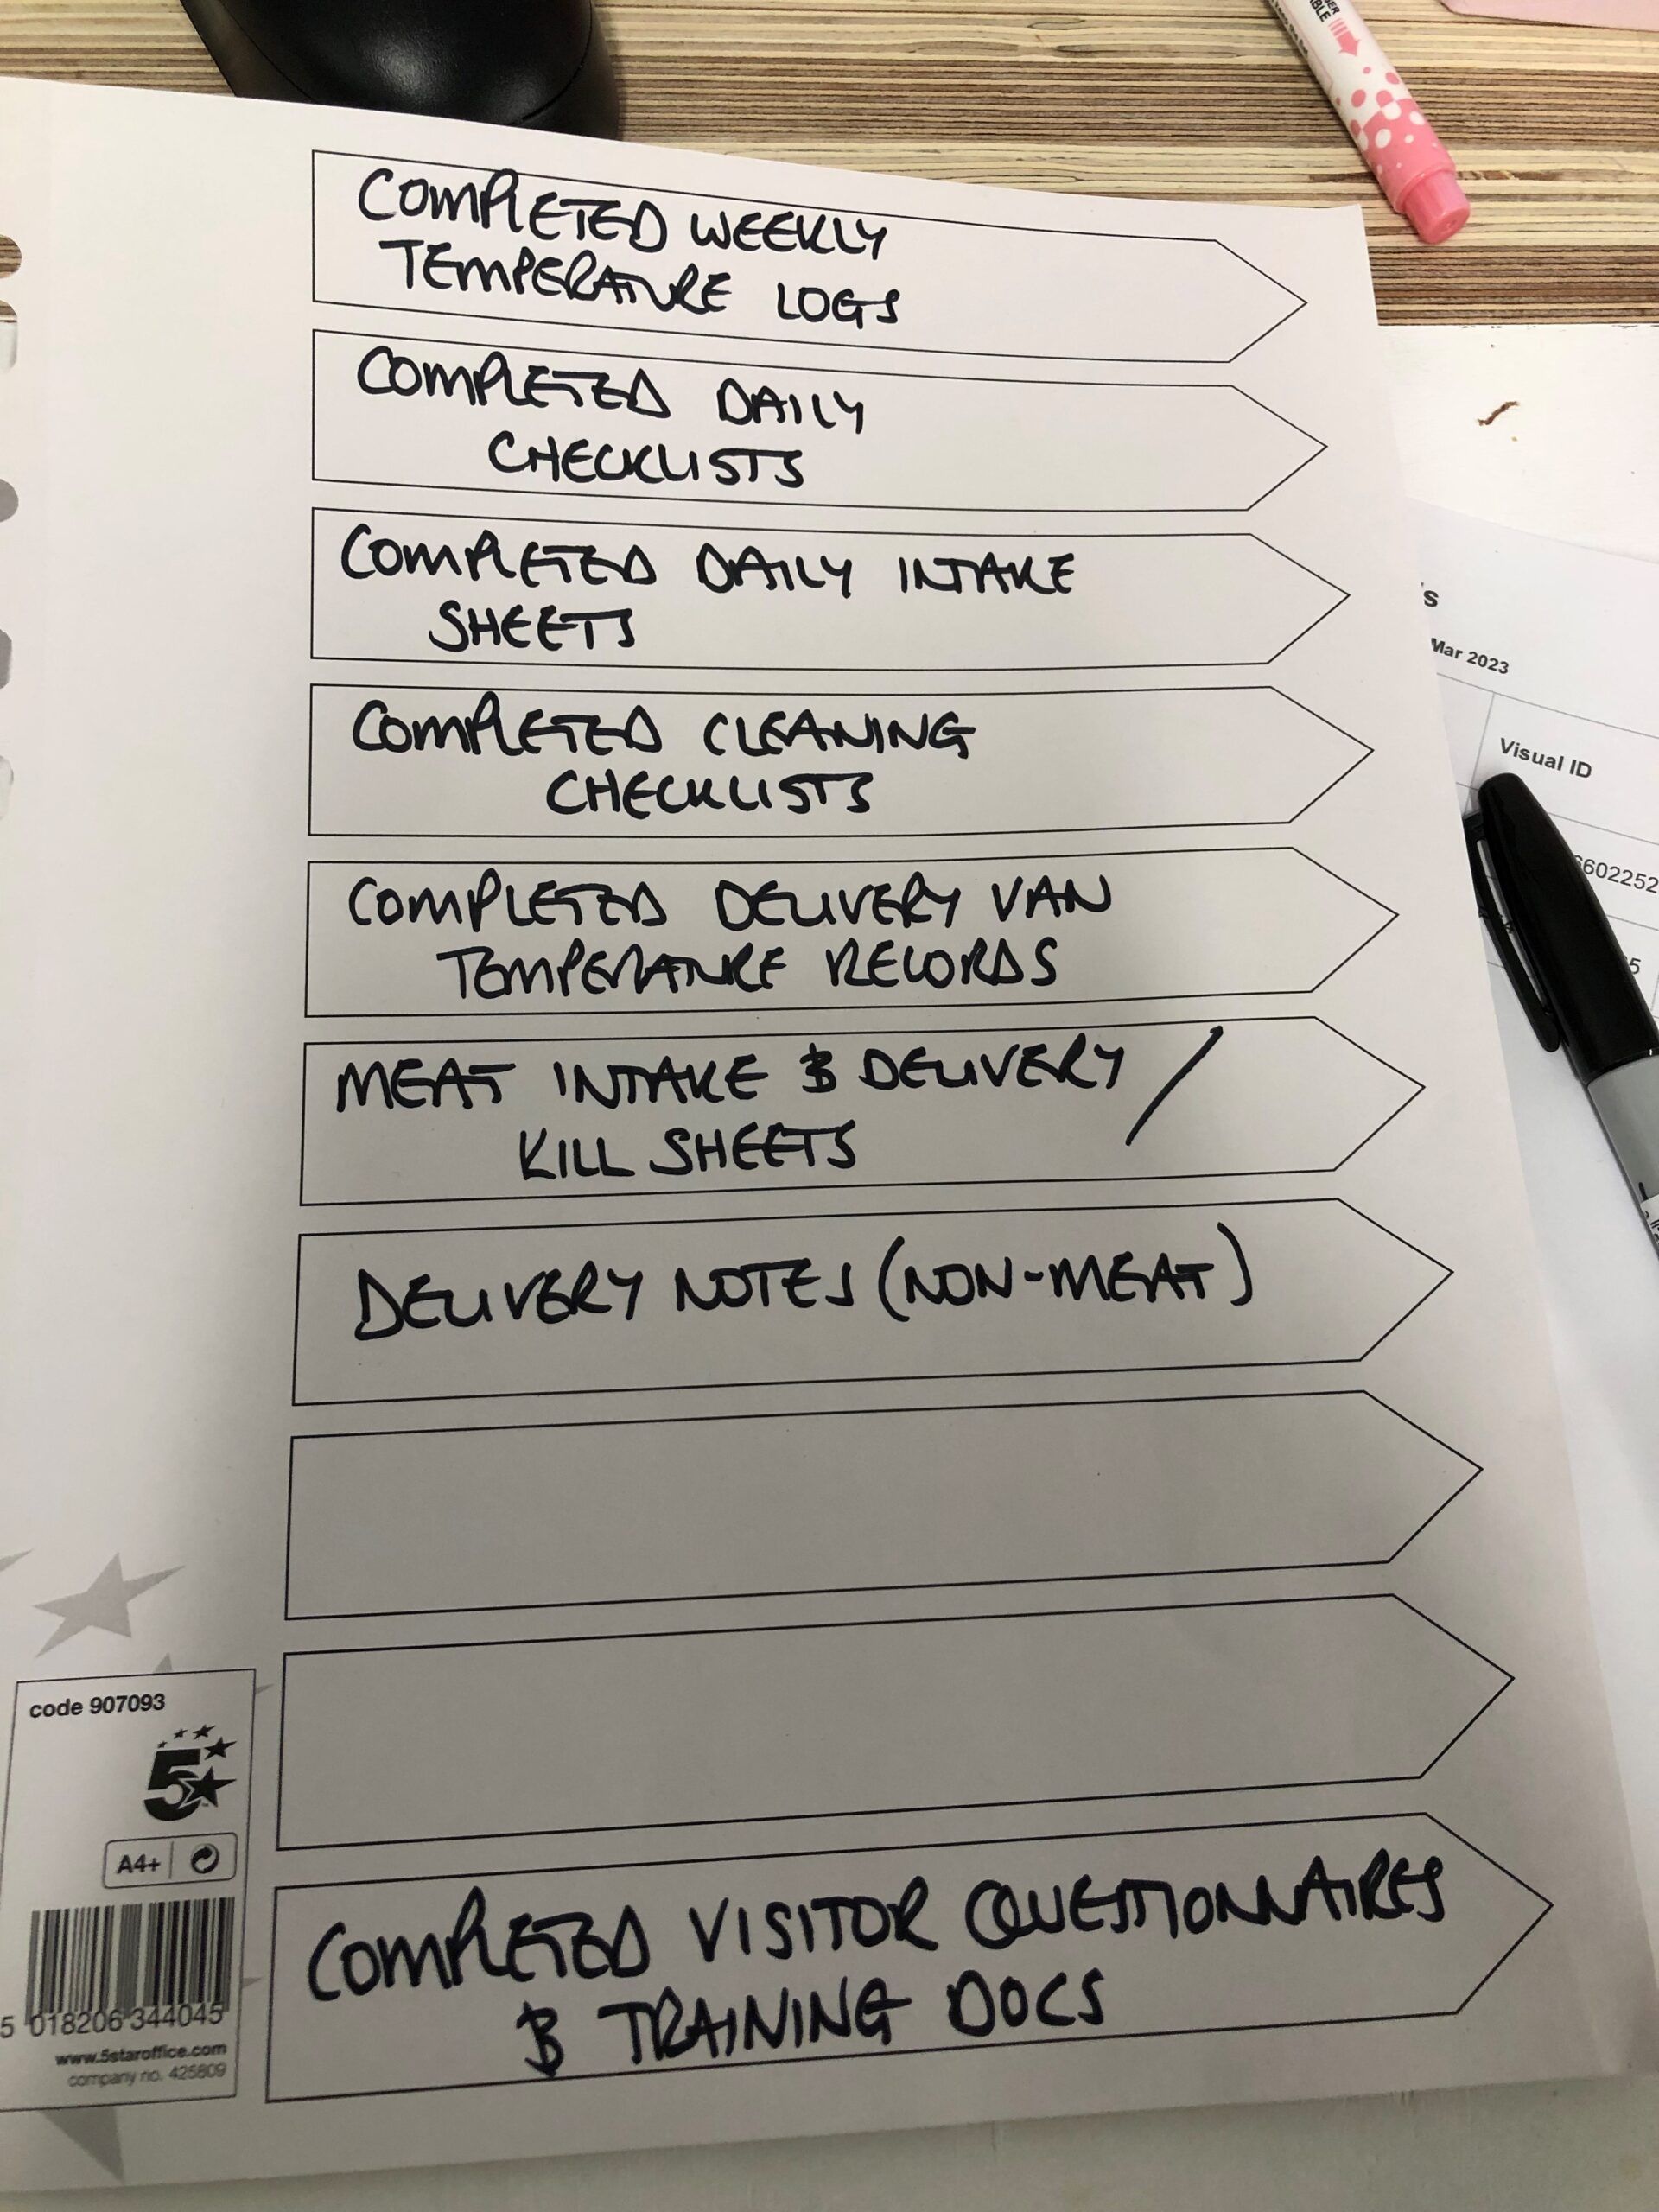 COMPLETED WEEKLY
TEMPERATURE LOGS
COMPLETED DAILY
CHECKLISTS
COMPLETED DAILY INTAKE
SHEETS
COMPLETED CLEANING
CHECKLISTS
COMPLETED DELIVERY VAN
TEMPERATURE RECORDS
MEAT INTAKE & DELIVERY /
KILL SHEETS
DELIVERY NOTES (NON-MEAT)
COMPLETED VISITOR QUESTIONNAIRES
& TRAINING DOCS
code 907093
5
A4+
5 018206 344045
www.5staroffice.com
company no. 425809
Mar 2023
Visual ID
602252